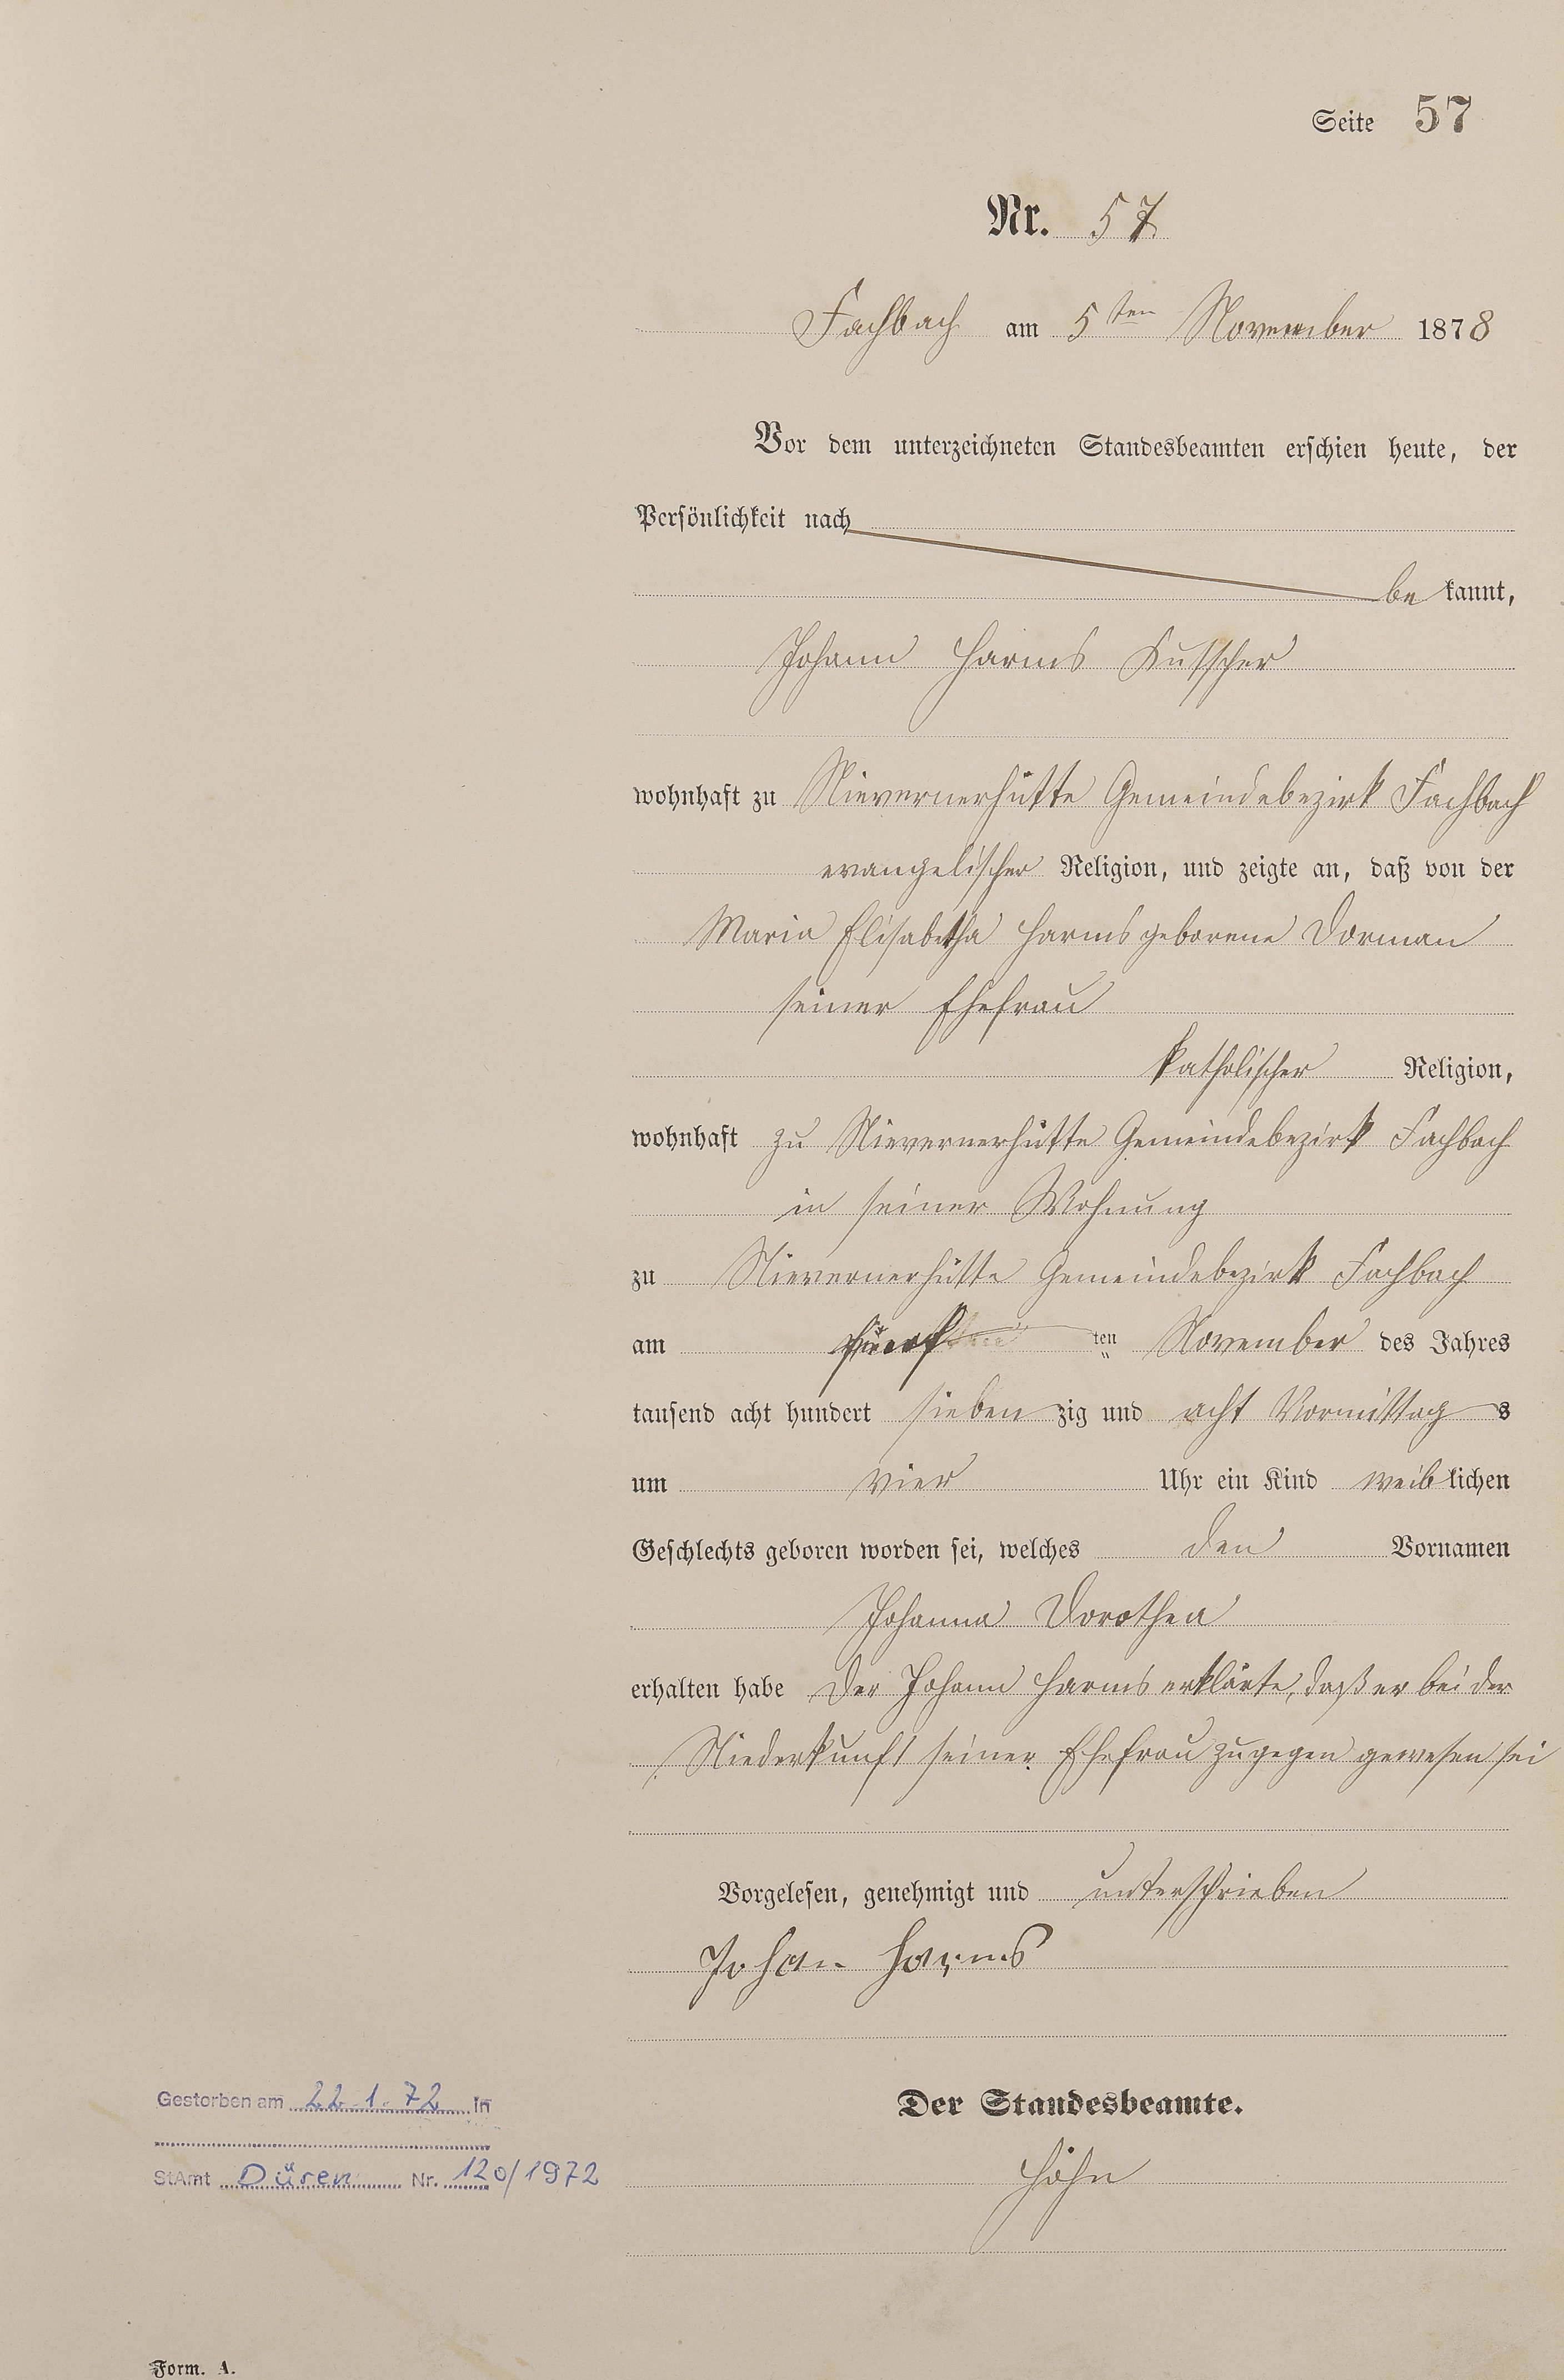 Seite 57
Nr. 57
Fachbach am 5ten November 1878
Vor dem unterzeichneten Standesbeamten erschien heute, der
Persönlichkeit nach
be kannt,
Johann Harms Kutscher
wohnhaft zu Nievernerhütte Gemeindebezirk Fachbach
evangelischer Religion, und zeigte an, daß von der
Maria Elisabetha Harms geborene Dorman
seiner Ehefrau
katholischer Religion,
wohnhaft zu Nievernerhütte Gemeindebezirk Fachbach
in seiner Wohnung
zu Nievernerhütte Gemeindebezirk Fachbach
am ten November des Jahres
tausend acht hundert sieben zig und acht Vormittag s
um vier Uhr ein Kind weib lichen
Geschlechts geboren worden sei, welches den Vornamen
Johanna Dorothea
erhalten habe Der Johann Harms erklärte, daß er bei der
Niederkunft seiner Ehefrau zugegen gewesen sei
Vorgelesen, genehmigt und unterschrieben
Johan Harms
Der Standesbeamte.
Höhn
Gestorben am 22.1.72 in
StAmt Düren Nr. 120/1972
Form. A.